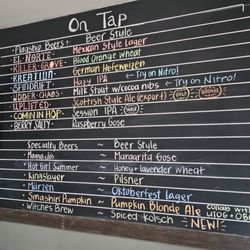 On Tap
Flagship Beers ~ Beer Style
EL NORTE ~ Mexican Style Lager
KILLER GROVE ~ Blood Orange Wheat
KREBTIUM ~ German Hefeweizen
SPINDRIFT ~ Hazy IPA ← Try on Nitro!
UDDER CHAOS ~ Milk Stout w/cocoa nibs ← Try on Nitro!
UPLIFTED ~ Scottish Style Ale (export) GOLD
COMIN IN HOP ~ Session IPA
BERRY SALLY ~ Raspberry Gose
Specialty Beers ~ Beer Style
Mamacita ~ Margarita Gose
Hot Girl Summer ~ Honey + lavender wheat
Kingslayer ~ Pilsner
Marzen ~ Oktoberfest Lager
Smashin Pumpkin ~ Pumpkin Blonde Ale collab with
Witches Brew ~ Spiced Kolsch NEW!